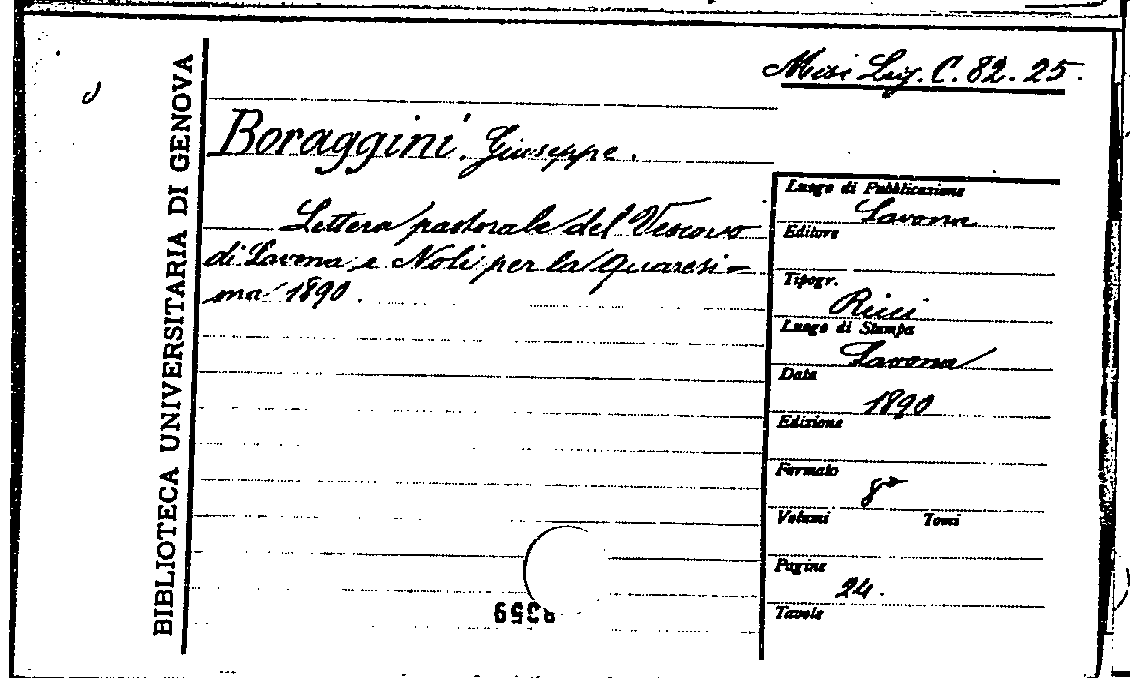 BIBLIOTECA UNIVERSITARIA DI GENOVA
Misc. Lig. C. 82. 25.
Boraggini. Giuseppe.
Lettera pastorale del Vescovo
di Savona e Noli per la Quaresi=
ma 1890.
Luogo di Pubblicazione
Savona
Editore
Tipogr.
Ricci
Luogo di Stampa
Savona
Data
1890
Edizione
Formato
8°
Volumi Tomi
Pagine
24.
Tavole